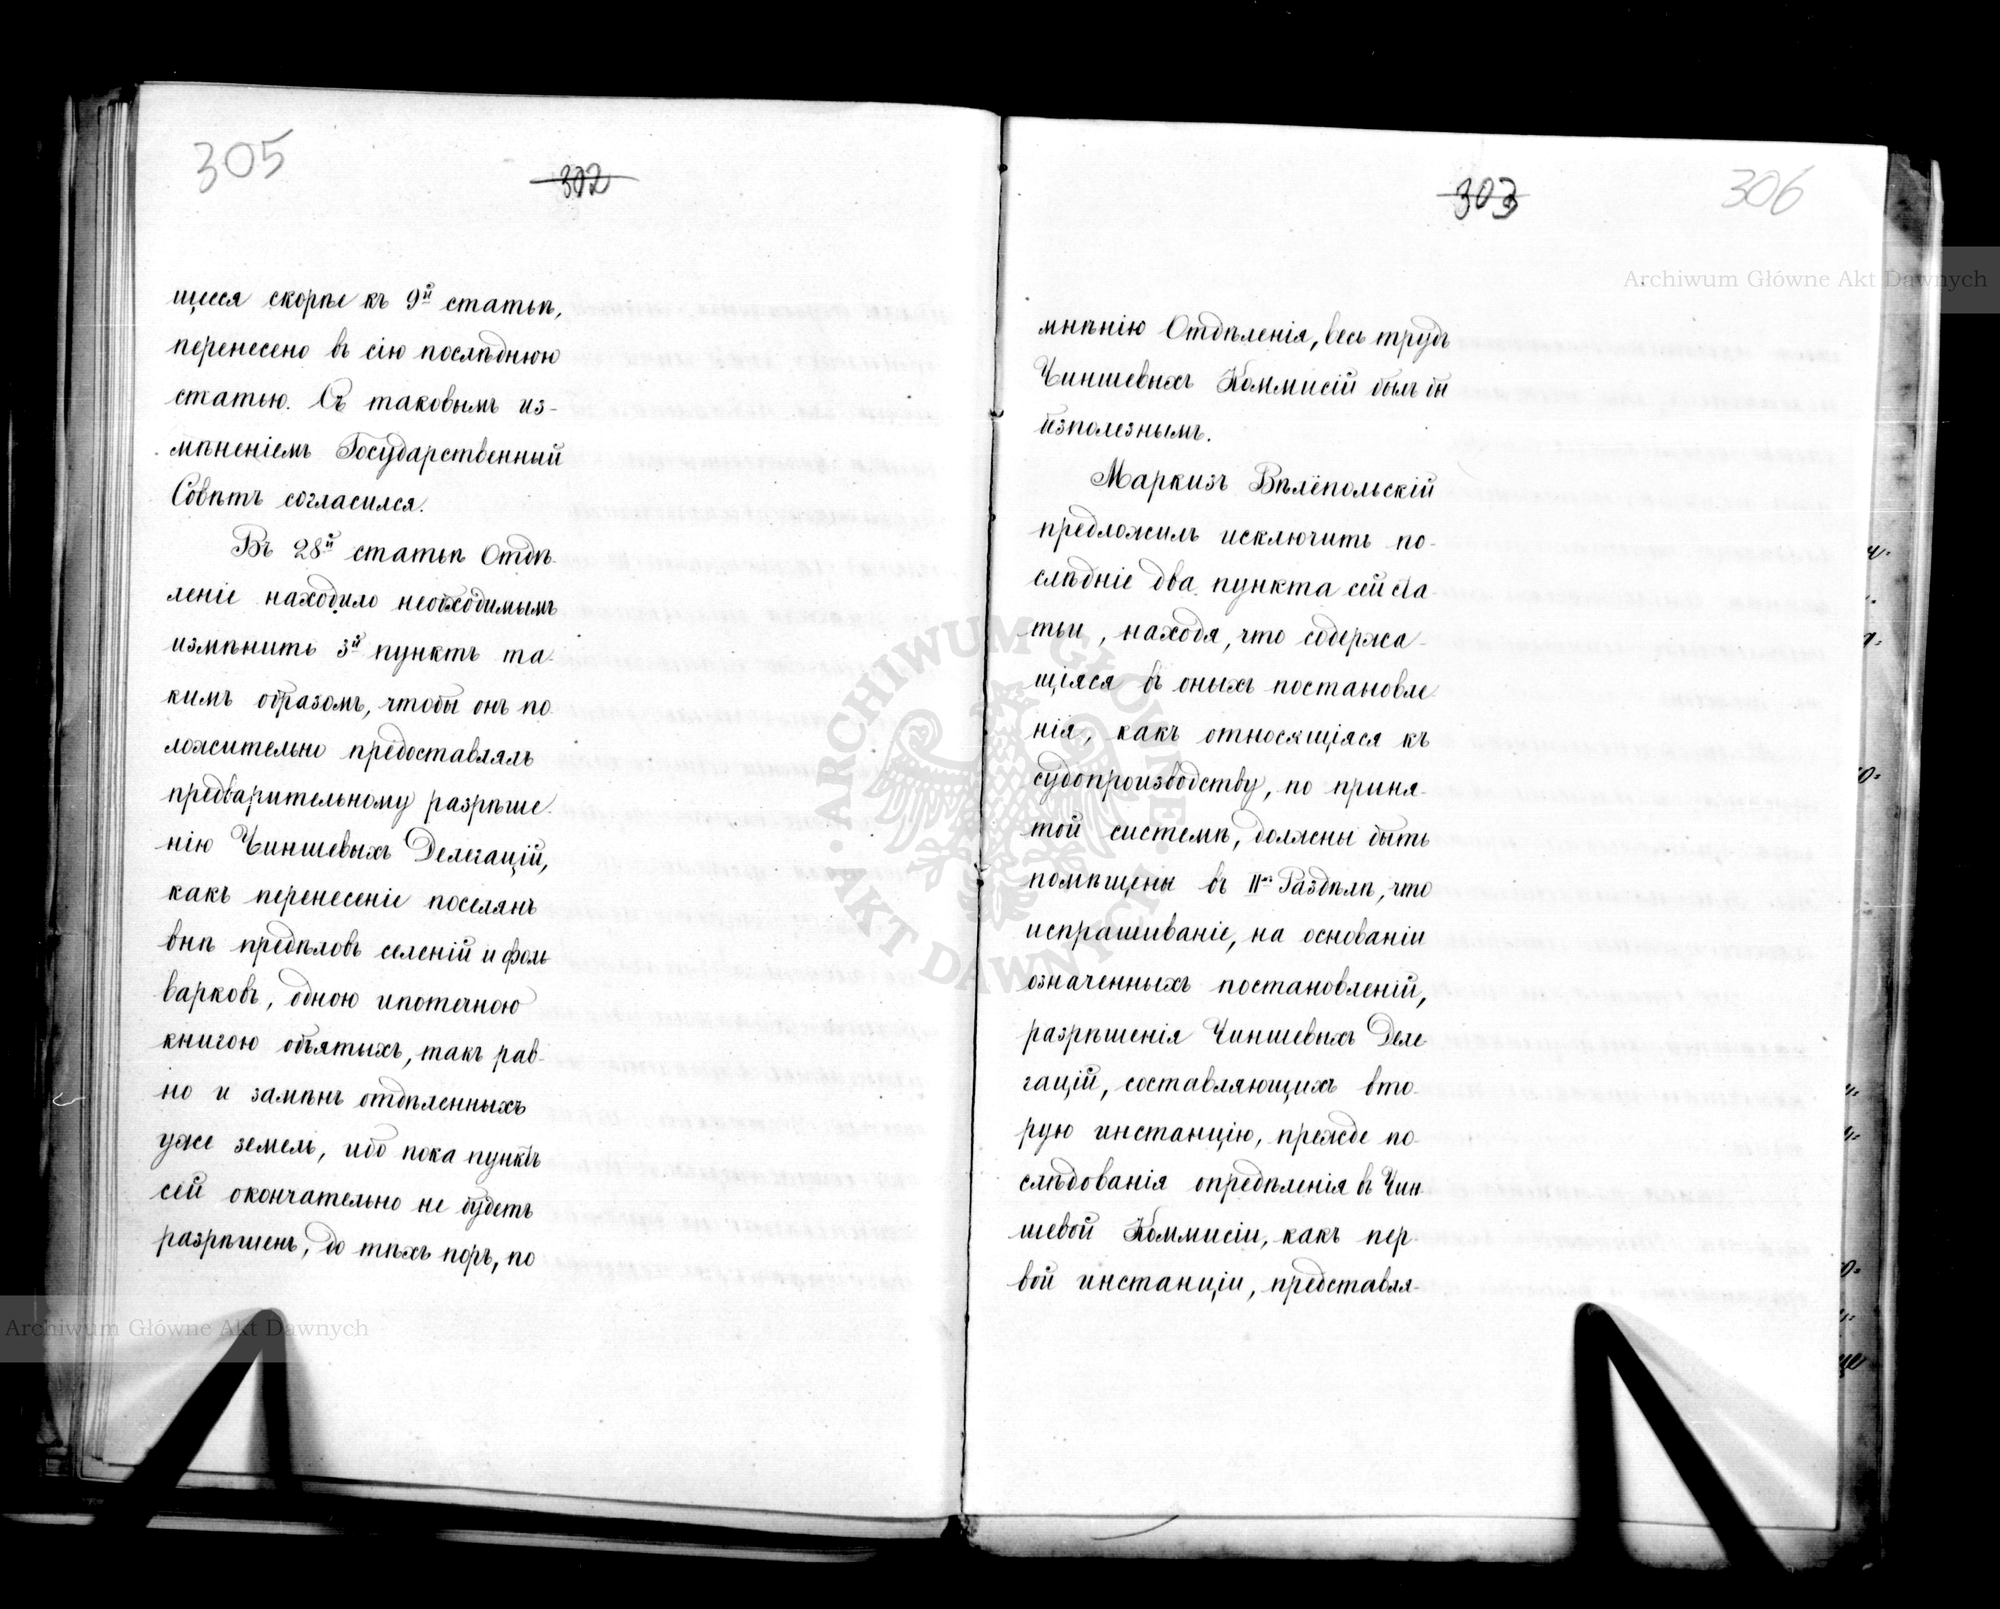 305
302
щееся скорѣе къ 9й статьѣ,
перенесено въ сію послѣднюю
статью. Съ таковымъ из-
мѣненіемъ Государственный
Совѣтъ согласился.
Въ 28й статьѣ Отдѣ-
леніе находило необходимымъ
измѣнить 3й пунктъ та-
кимъ образомъ, чтобы онъ по
ложительно предоставлялъ
предварительному разрѣше-
нію Чиншевыхъ Делегацій,
какъ перенесеніе поселянъ
внѣ предѣловъ селеній и фоль
варковъ, одною ипотечною
книгою объятыхъ, такъ рав-
но и замѣнъ отдѣленныхъ
уже земель, ибо пока пунктъ
сей окончательно не будетъ
разрѣшенъ, до тѣхъ поръ, по
303
306
мнѣнію Отдѣленія, весь трудъ
Чиншевыхъ Коммисій былъ бы
безполезнымъ.
Маркизъ Вѣлёпольскій
предложилъ исключить по-
слѣдніе два пункта сей ста-
тьи, находя, что содержа-
щіяся въ оныхъ постановле
нія, какъ относящіяся къ
судопроизводству, по приня-
той системѣ, должны быть
помѣщены въ IIмъ Раздѣлѣ, что
испрашиваніе, на основаніи
означенныхъ постановленій,
разрѣшенія Чиншевыхъ Деле-
гацій, составляющихъ вто-
рую инстанцію, прежде по-
слѣдованія опредѣленія въ Чин-
шевой Коммисіи, какъ пер-
вой инстанціи, представля-
Archiwum Główne Akt Dawnych
Archiwum Główne Akt Dawnych
ARCHIWUM GŁÓWNE
AKT DAWNYCH